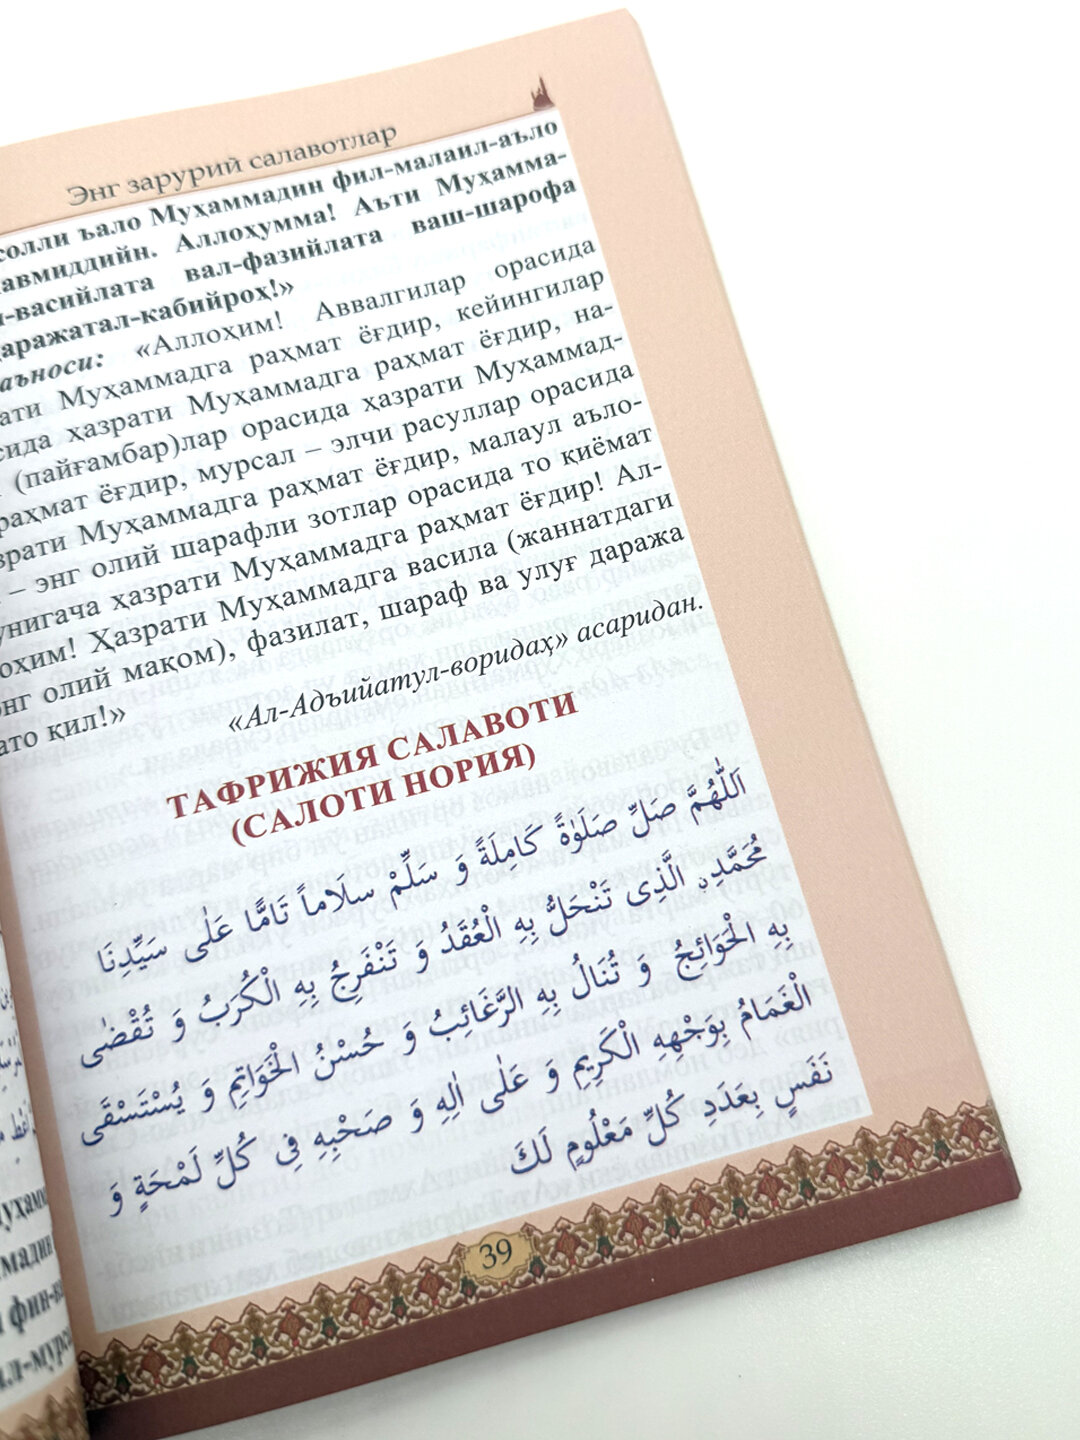 Энг зарурий салавотлар
солли ъало Муҳаммадин фил-малаил-аъло
Аллоҳумма! Аъти Муҳамма-
васийлата вал-фазийлата ваш-шарофа
даражатал-кабийроҳ!»
«Аллоҳим! Аввалгилар орасида
Муҳаммадга раҳмат ёғдир, кейингилар
ҳазрати Муҳаммадга раҳмат ёғдир, на-
(пайғамбар)лар орасида ҳазрати Муҳаммад-
раҳмат ёғдир, мурсал – элчи расуллар орасида
Муҳаммадга раҳмат ёғдир, малаул аъло-
– энг олий шарафли зотлар орасида то қиёмат
ҳазрати Муҳаммадга раҳмат ёғдир! Ал-
Ҳазрати Муҳаммадга васила (жаннатдаги
олий мақом), фазилат, шараф ва улуғ даража
қил!»
«Ал-Адъийатул-воридаҳ» асаридан.
ТАФРИЖИЯ САЛАВОТИ
(САЛОТИ НОРИЯ)
اَللّٰهُمَّ صَلِّ صَلَوٰةً كَامِلَةً وَ سَلِّمْ سلَاماً تَامًّا عَلٰى سَيِّدِنَا
مُحَمَّدِنِ الَّذِى تَنْحَلُّ بِهِ الْعُقَدُ وَ تَنْفَرِجُ بِهِ الْكُرَبُ وَ تُقْضٰى
بِهِ الْحَوَائِجُ وَ تُنَالُ بِهِ الرَّغَائِبُ وَ حُسْنُ الْخَوَاتِمِ وَ يُسْتَسْقَى
الْغَمَامُ بِوَجْهِهِ الْكَرِيمِ وَ عَلٰى اٰلِهِ وَ صَحْبِهِ فِى كُلِّ لَمْحَةٍ وَ
نَفَسٍ بِعَدَدِ كُلِّ مَعْلُومٍ لَكَ
39